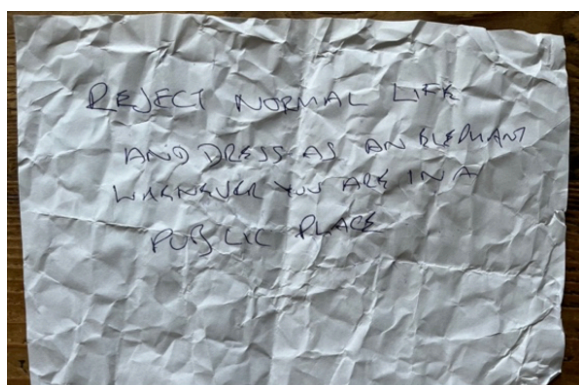 REJECT NORMAL LIFE
AND DRESS AS AN ELEPHANT
WHENEVER YOU ARE IN A
PUBLIC PLACE